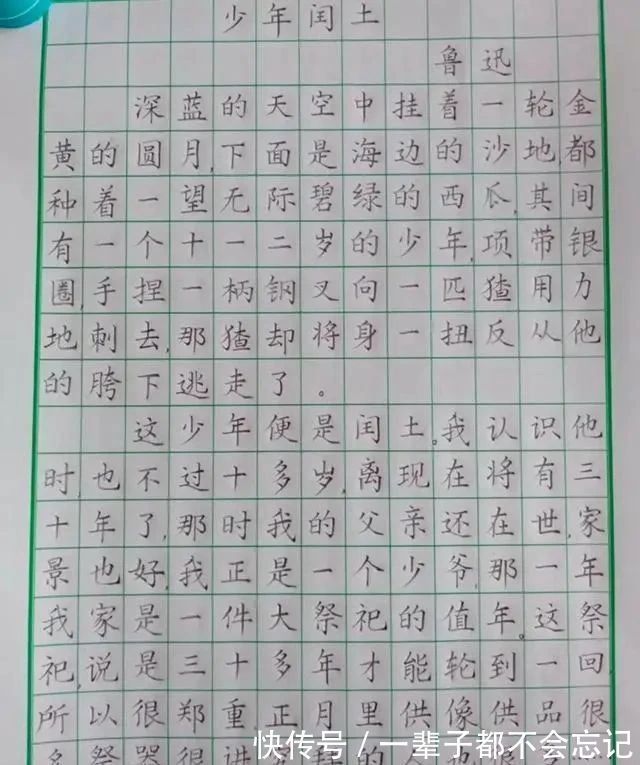 少年闰土
鲁迅
深蓝的天空中挂着一轮金
黄的圆月,下面是海边的沙地,都
种着一望无际碧绿的西瓜,其间
有一个十一二岁的少年,项带银
圈,手捏一柄钢叉向一匹猹用力
地刺去,那猹却将身一扭反从他
的胯下逃走了。
这少年便是闰土。我认识他
时,也不过十多岁,离现在将有三
十年了,那时我的父亲还在世,家
景也好,我正是一个少爷,那一年
我家是一件大祭祀的值年。这祭
祀,说是三十多年才能轮到一回,
所以很郑重,正月里供像供品很
多祭器很讲
快传号/一辈子都不会忘记